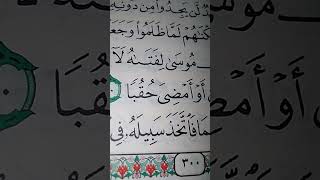 لَّن يَجِدُوا۟ مِن دُونِهِۦ
لَمَّا ظَلَمُوا۟
مُوسَىٰ لِفَتَىٰهُ لَآ
أَوْ أَمْضِىَ حُقُبًا
فَٱتَّخَذَ سَبِيلَهُۥ فِى
٣٠٠